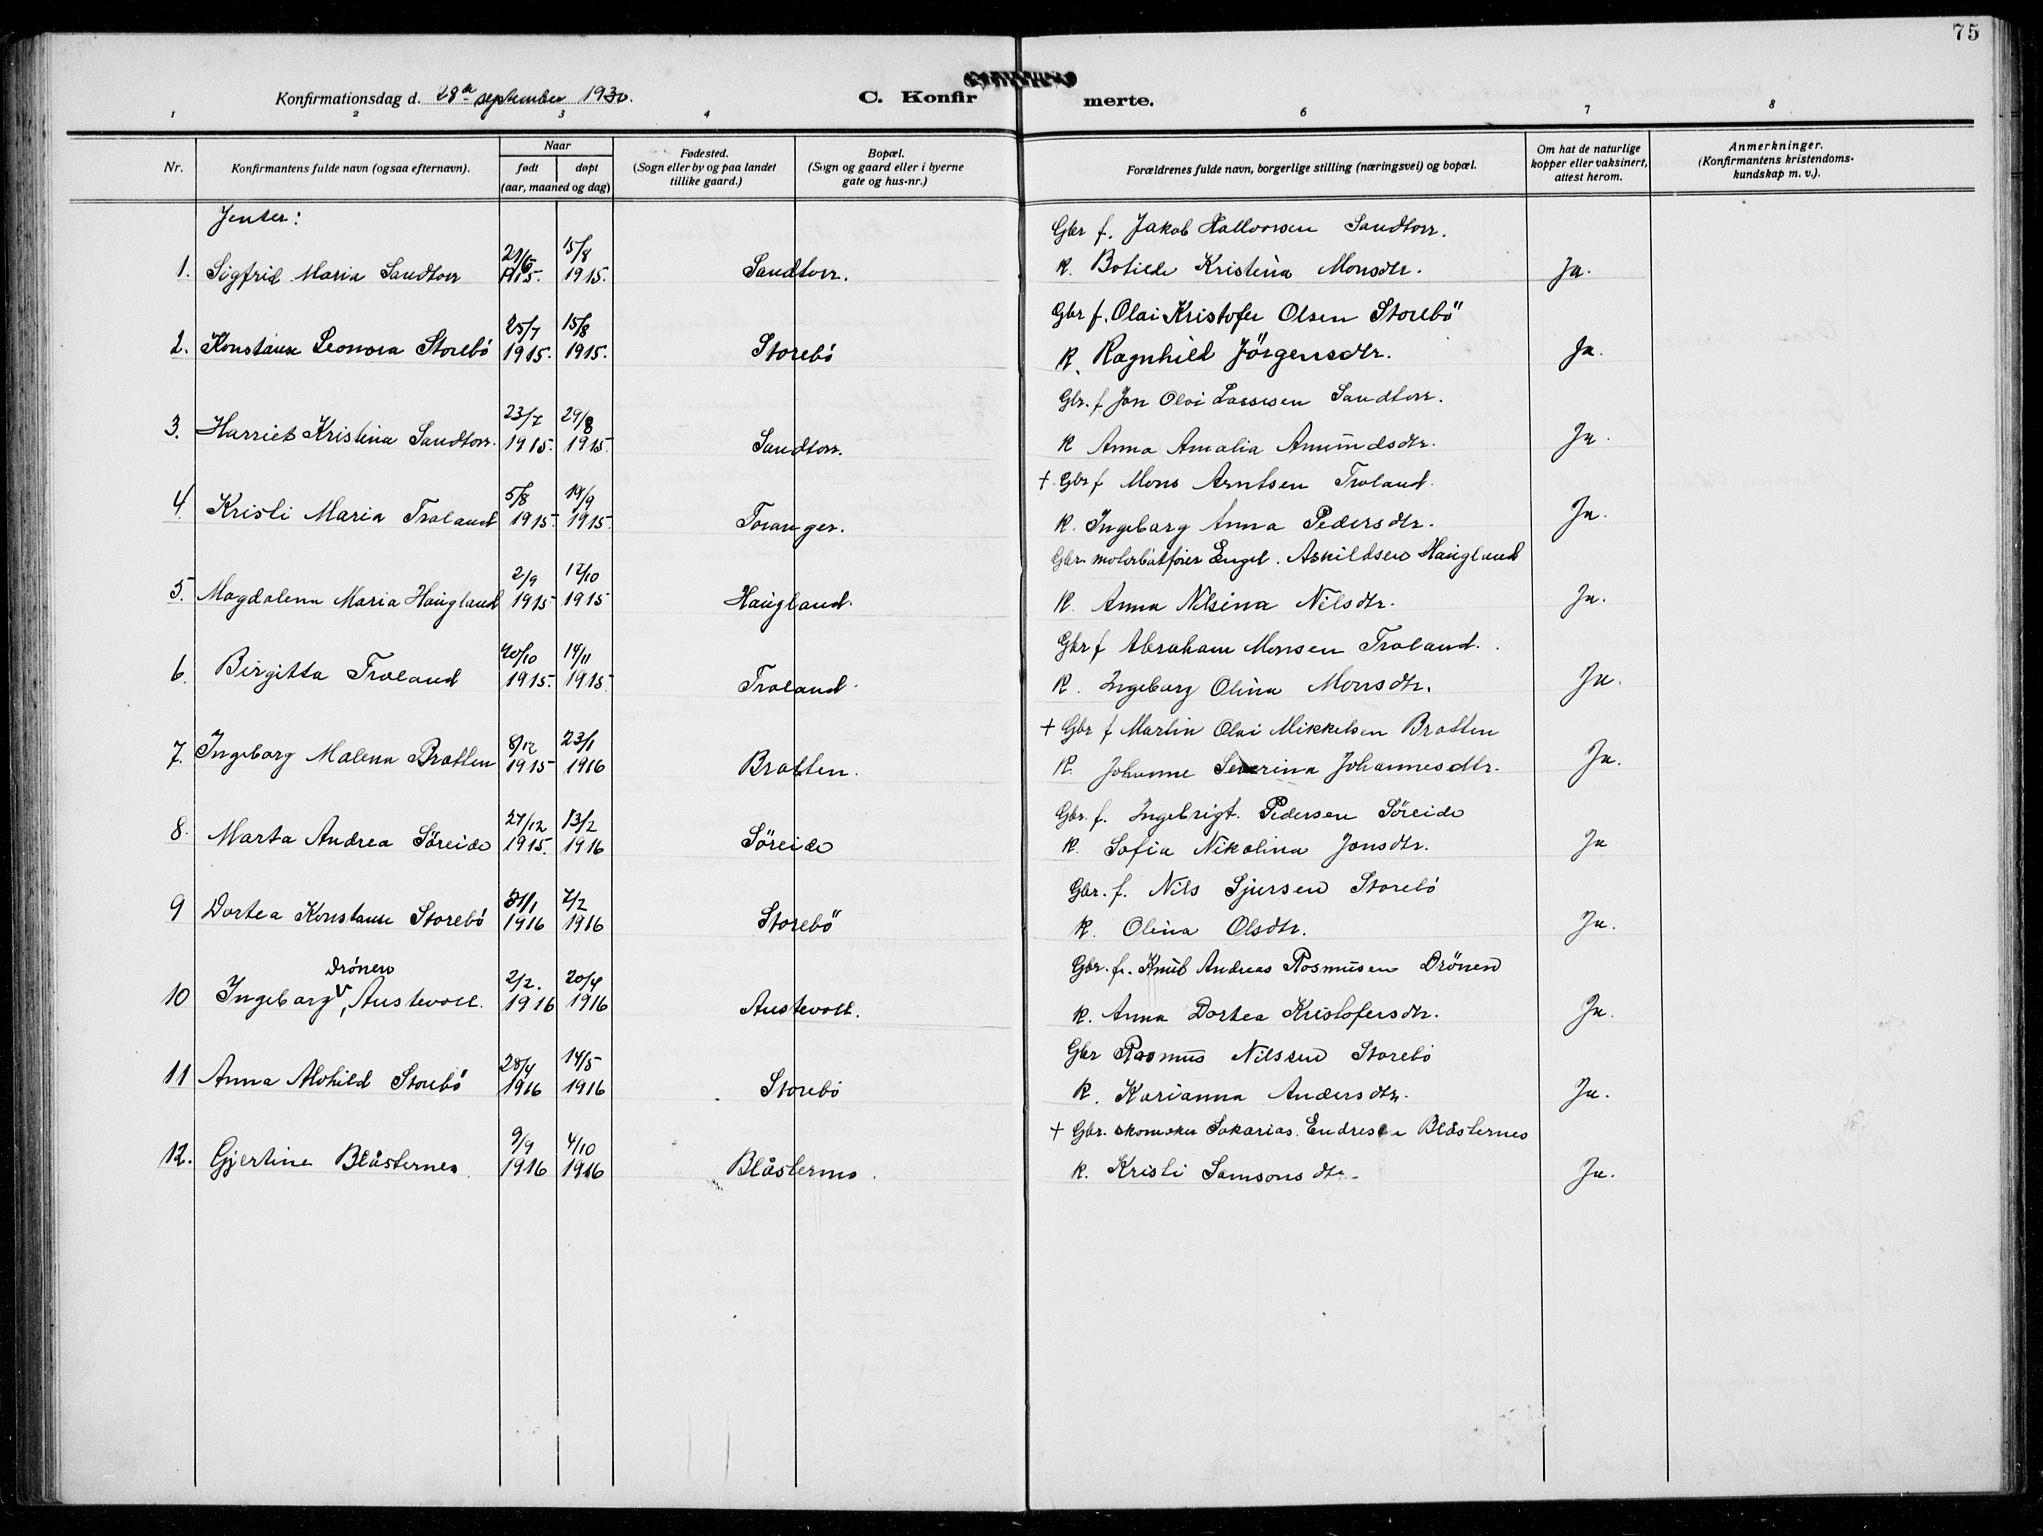 75
Konfirmationsdag d. 28de september 1930.
C. Konfirmerte.
1 2 3 4 6 7 8
Nr.
Konfirmantens fulde navn (ogsaa efternavn).
Naar
født døpt
(aar, maaned og dag)
Fødested.
(Sogn eller by og paa landet
tillike gaard.)
Bopæl.
(Sogn og gaard eller i byerne
gate og hus-nr.)
Forældrenes fulde navn, borgerlige stilling (næringsvei) og bopæl.
Om hat de naturlige
kopper eller vaksinert,
attest herom.
Anmerkninger.
(Konfirmantens kristendoms-
kundskap m. v.).
Jenter:
Gbr f. Jakob Halvorsen Sandtorv.
15/8
1. Sigfrid Maria Sandtorv 1915. 1915. Sandtorv. K. Botilde Kristina Monsdtr. Ja.
25/7 15/8 Gbr f. Olai Kristofer Olsen Storebö
2. Konstanse Leonora Storebö 1915. 1915. Storebö K. Ragnhild Jörgensdtr. Ja.
23/7 29/8 Gbr. f Jon Olai Lassesen Sandtorv.
3. Harriet Kristina Sandtorv. 1915. 1915. Sandtorv. K Anna Amalia Amundsdtr. Ja.
5/8 19/9 + Gbr f Mons Arntsen Troland.
4. Kristi Maria Troland 1915. 1915. Toranger. K. Ingeborg Anna Pedersdtr. Ja.
2/9 17/10 Gbr. motorbåtfører Engel. Askildsen Haugland
5. Magdalena Maria Haugland 1915 1915 Haugland. K. Anna Nilsina Nilsdtr. Ja.
20/10 14/11 Gbr f Abraham Monsen Troland.
6. Birgitta Troland 1915. 1915 Troland. K. Ingeborg Olina Monsdtr. Ja.
8/12 23/1 + Gbr f Martin Olai Mikkelsen Bratten
7. Ingeborg Malena Bratten 1915 1916 Bratten. K. Johanne Severina Johannesdtr. Ja.
27/12 13/2 Gbr. f. Ingebrigt. Pedersen Söreide
8. Marta Andrea Söreide 1915. 1916 Söreide K. Sofia Nikolina Jonsdtr. Ja
7/2 Gbr. f. Nils Sjursen Storebö
9 Dortea Konstanse Storebö 1916 1916 Storebö K. Olina Olsdtr. Ja.
Drönen 2/2. 20/4 Gbr. f. Knut Andreas Rasmusen Drönen
10 Ingeborg V, Austevoll. 1916 1916 Austevoll. K. Anna Dortea Kristofersdtr. Ja.
28/4 14/5 Gbr Rasmus Nilssen Storebö
11 Anna Alvhild Storebö 1916 1916 Storebö K. Karianna Andersdtr. Ja.
9/9 4/10 + Gbr. skomaker Sakarias. Endresen Blåsternes
12. Gjertine Blåsternes 1916 1916 Blåsternes. K. Kristi Samsonsdtr. Ja.